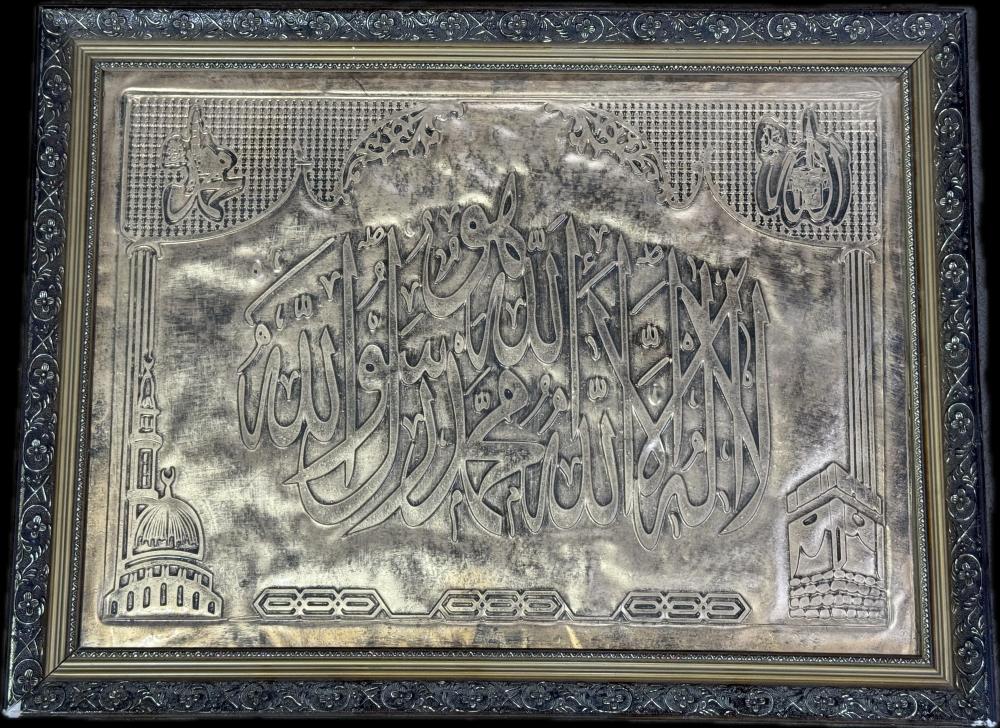 الله محمد
هو الله
لا اله الا الله محمد رسول الله